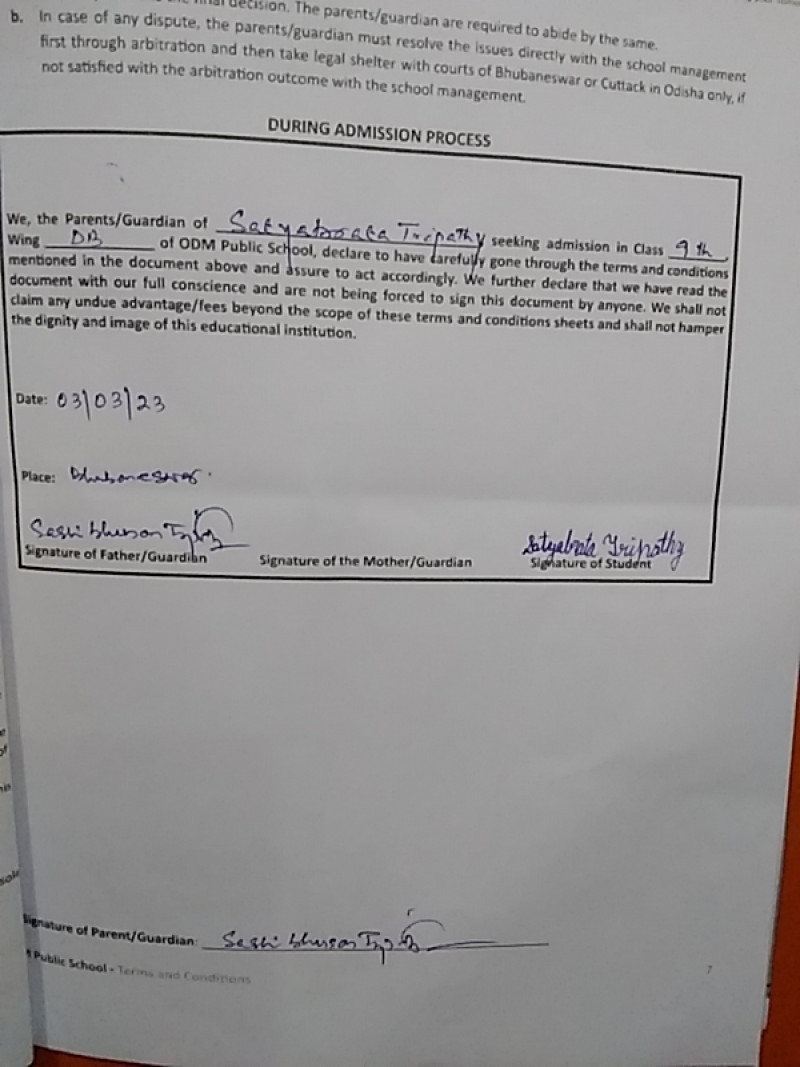 decision. The parents/guardian are required to abide by the same.
b. In case of any dispute, the parents/guardian must resolve the issues directly with the school management
first through arbitration and then take legal shelter with courts of Bhubaneswar or Cuttack in Odisha only, if
not satisfied with the arbitration outcome with the school management.
DURING ADMISSION PROCESS
We, the Parents/Guardian of Satyabrata Tripathy seeking admission in Class 9th
Wing DB of ODM Public School, declare to have carefully gone through the terms and conditions
mentioned in the document above and assure to act accordingly. We further declare that we have read the
document with our full conscience and are not being forced to sign this document by anyone. We shall not
claim any undue advantage/fees beyond the scope of these terms and conditions sheets and shall not hamper
the dignity and image of this educational institution.
Date: 03/03/23
Place: Bhubaneswar
Sashi bhusan
Signature of Father/Guardian Signature of the Mother/Guardian
Satyabrata Tripathy
Signature of Student
Signature of Parent/Guardian: Sashi bhusan
Public School - Terms and Conditions 7